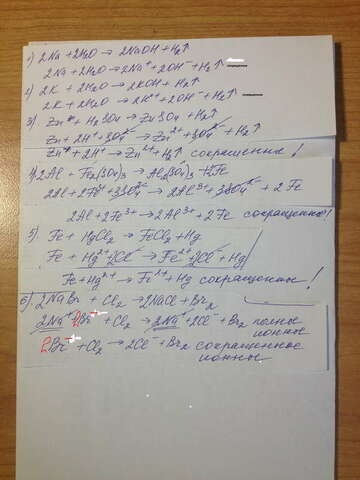 1) 2Na + 2H2O → 2NaOH + H2↑
2Na + 2H2O → 2Na⁺ + 2OH⁻ + H2↑
2) 2K + 2H2O → 2KOH + H2↑
2K + 2H2O → 2K⁺ + 2OH⁻ + H2↑
3) Zn + H2SO4 → ZnSO4 + H2↑
Zn + 2H⁺ + SO4²⁻ → Zn²⁺ + SO4²⁻ + H2↑
Zn + 2H⁺ → Zn²⁺ + H2↑ сокращенные!
4) 2Al + Fe2(SO4)3 → Al2(SO4)3 + 2Fe
2Al + 2Fe³⁺ + 3SO4²⁻ → 2Al³⁺ + 3SO4²⁻ + 2Fe
2Al + 2Fe³⁺ → 2Al³⁺ + 2Fe сокращенны!
5) Fe + HgCl2 → FeCl2 + Hg
Fe + Hg²⁺ + 2Cl⁻ → Fe²⁺ + 2Cl⁻ + Hg
Fe + Hg²⁺ → Fe²⁺ + Hg сокращенны!
6) 2NaBr + Cl2 → 2NaCl + Br2
2Na⁺ + 2Br⁻ + Cl2 → 2Na⁺ + 2Cl⁻ + Br2 полные
ионны
2Br⁻ + Cl2 → 2Cl⁻ + Br2 сокращенное
ионны